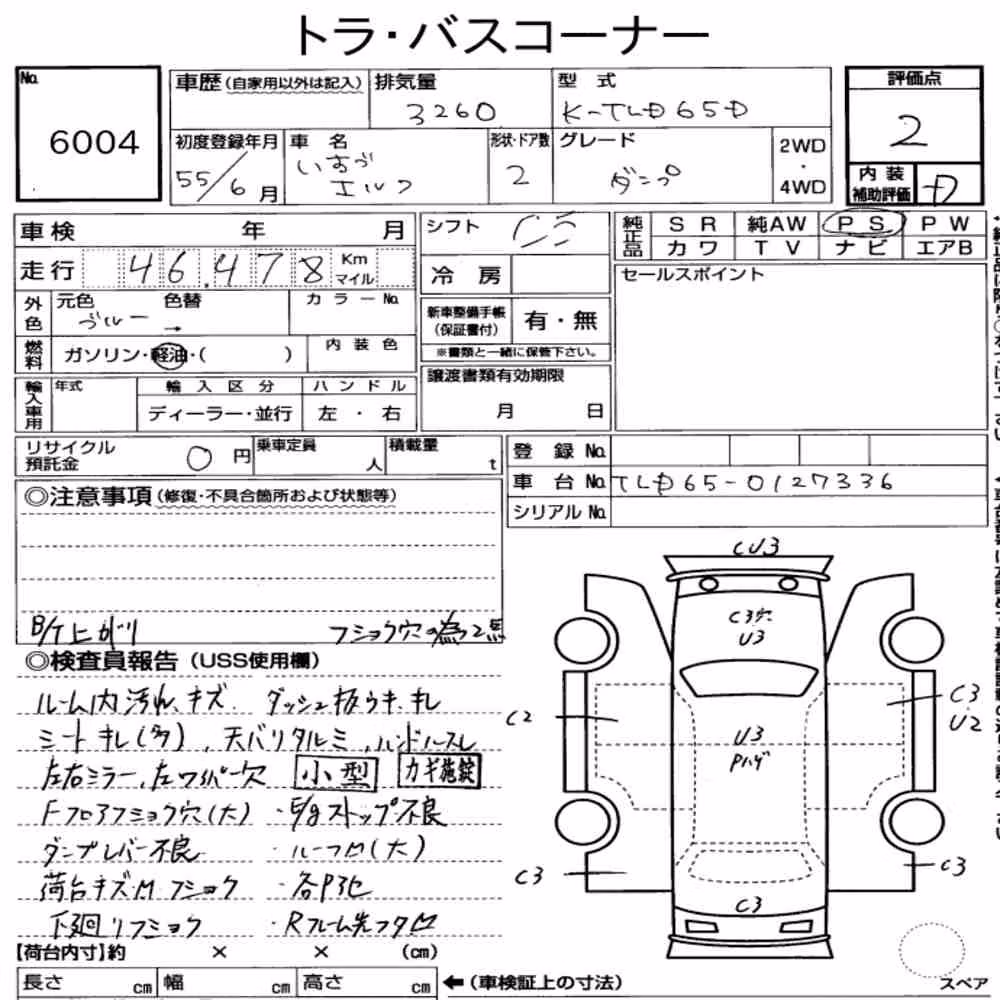 トラ・バスコーナー
No.
6004
車歴(自家用以外は記入)
排気量
3260
型 式
K-TLD65D
評価点
2
初度登録年月
55/6月
車 名
いすづ
エルフ
形状・ドア数
2
グレード
ダンプ
2WD
・
4WD
内 装
補助評価
D
車検 年 月
シフト
C5
純正品
S R 純AW P S P W
カワ T V ナビ エアB
走行 46,478 Km
マイル
冷 房
セールスポイント
外色
元色 色替
ブルー →
カ ラ ー No.
新車整備手帳
(保証書付)
有・無
燃料
ガソリン・軽油・( )
内 装 色
※書類と一緒に保管下さい。
輸入車用
年式
輸 入 区 分
ハ ン ド ル
ディーラー・並行
左 ・ 右
譲渡書類有効期限
月 日
リサイクル
預託金
0円
乗車定員
人
積載量
t
登 録 No.
車 台 No. TLD65-0127336
シリアル No.
◎注意事項(修復・不具合箇所および状態等)
B/T上がり フショク穴の為2点
◎検査員報告(USS使用欄)
ルーム内汚れ、キズ ダッシュ板ウキ、キレ
シートキレ(多)、天バリタルミ、ハンドルスレ
左右ミラー、左ワイパー欠 小型 カギ施錠
Fフロアフショク穴(大) ・E/gストップ不良
ダンプレバー不良 ・ルーフ凹(大)
荷台キズ.凹.フショク ・各P3凹
下廻リフショク ・Rフレーム先フタ凹
【荷台内寸】約 × × (cm)
長さ cm 幅 cm 高さ cm ←(車検証上の寸法)
CU3
C3穴
U3
C2
C3
U2
U3
Pハゲ
C3
C3
C3
スペア